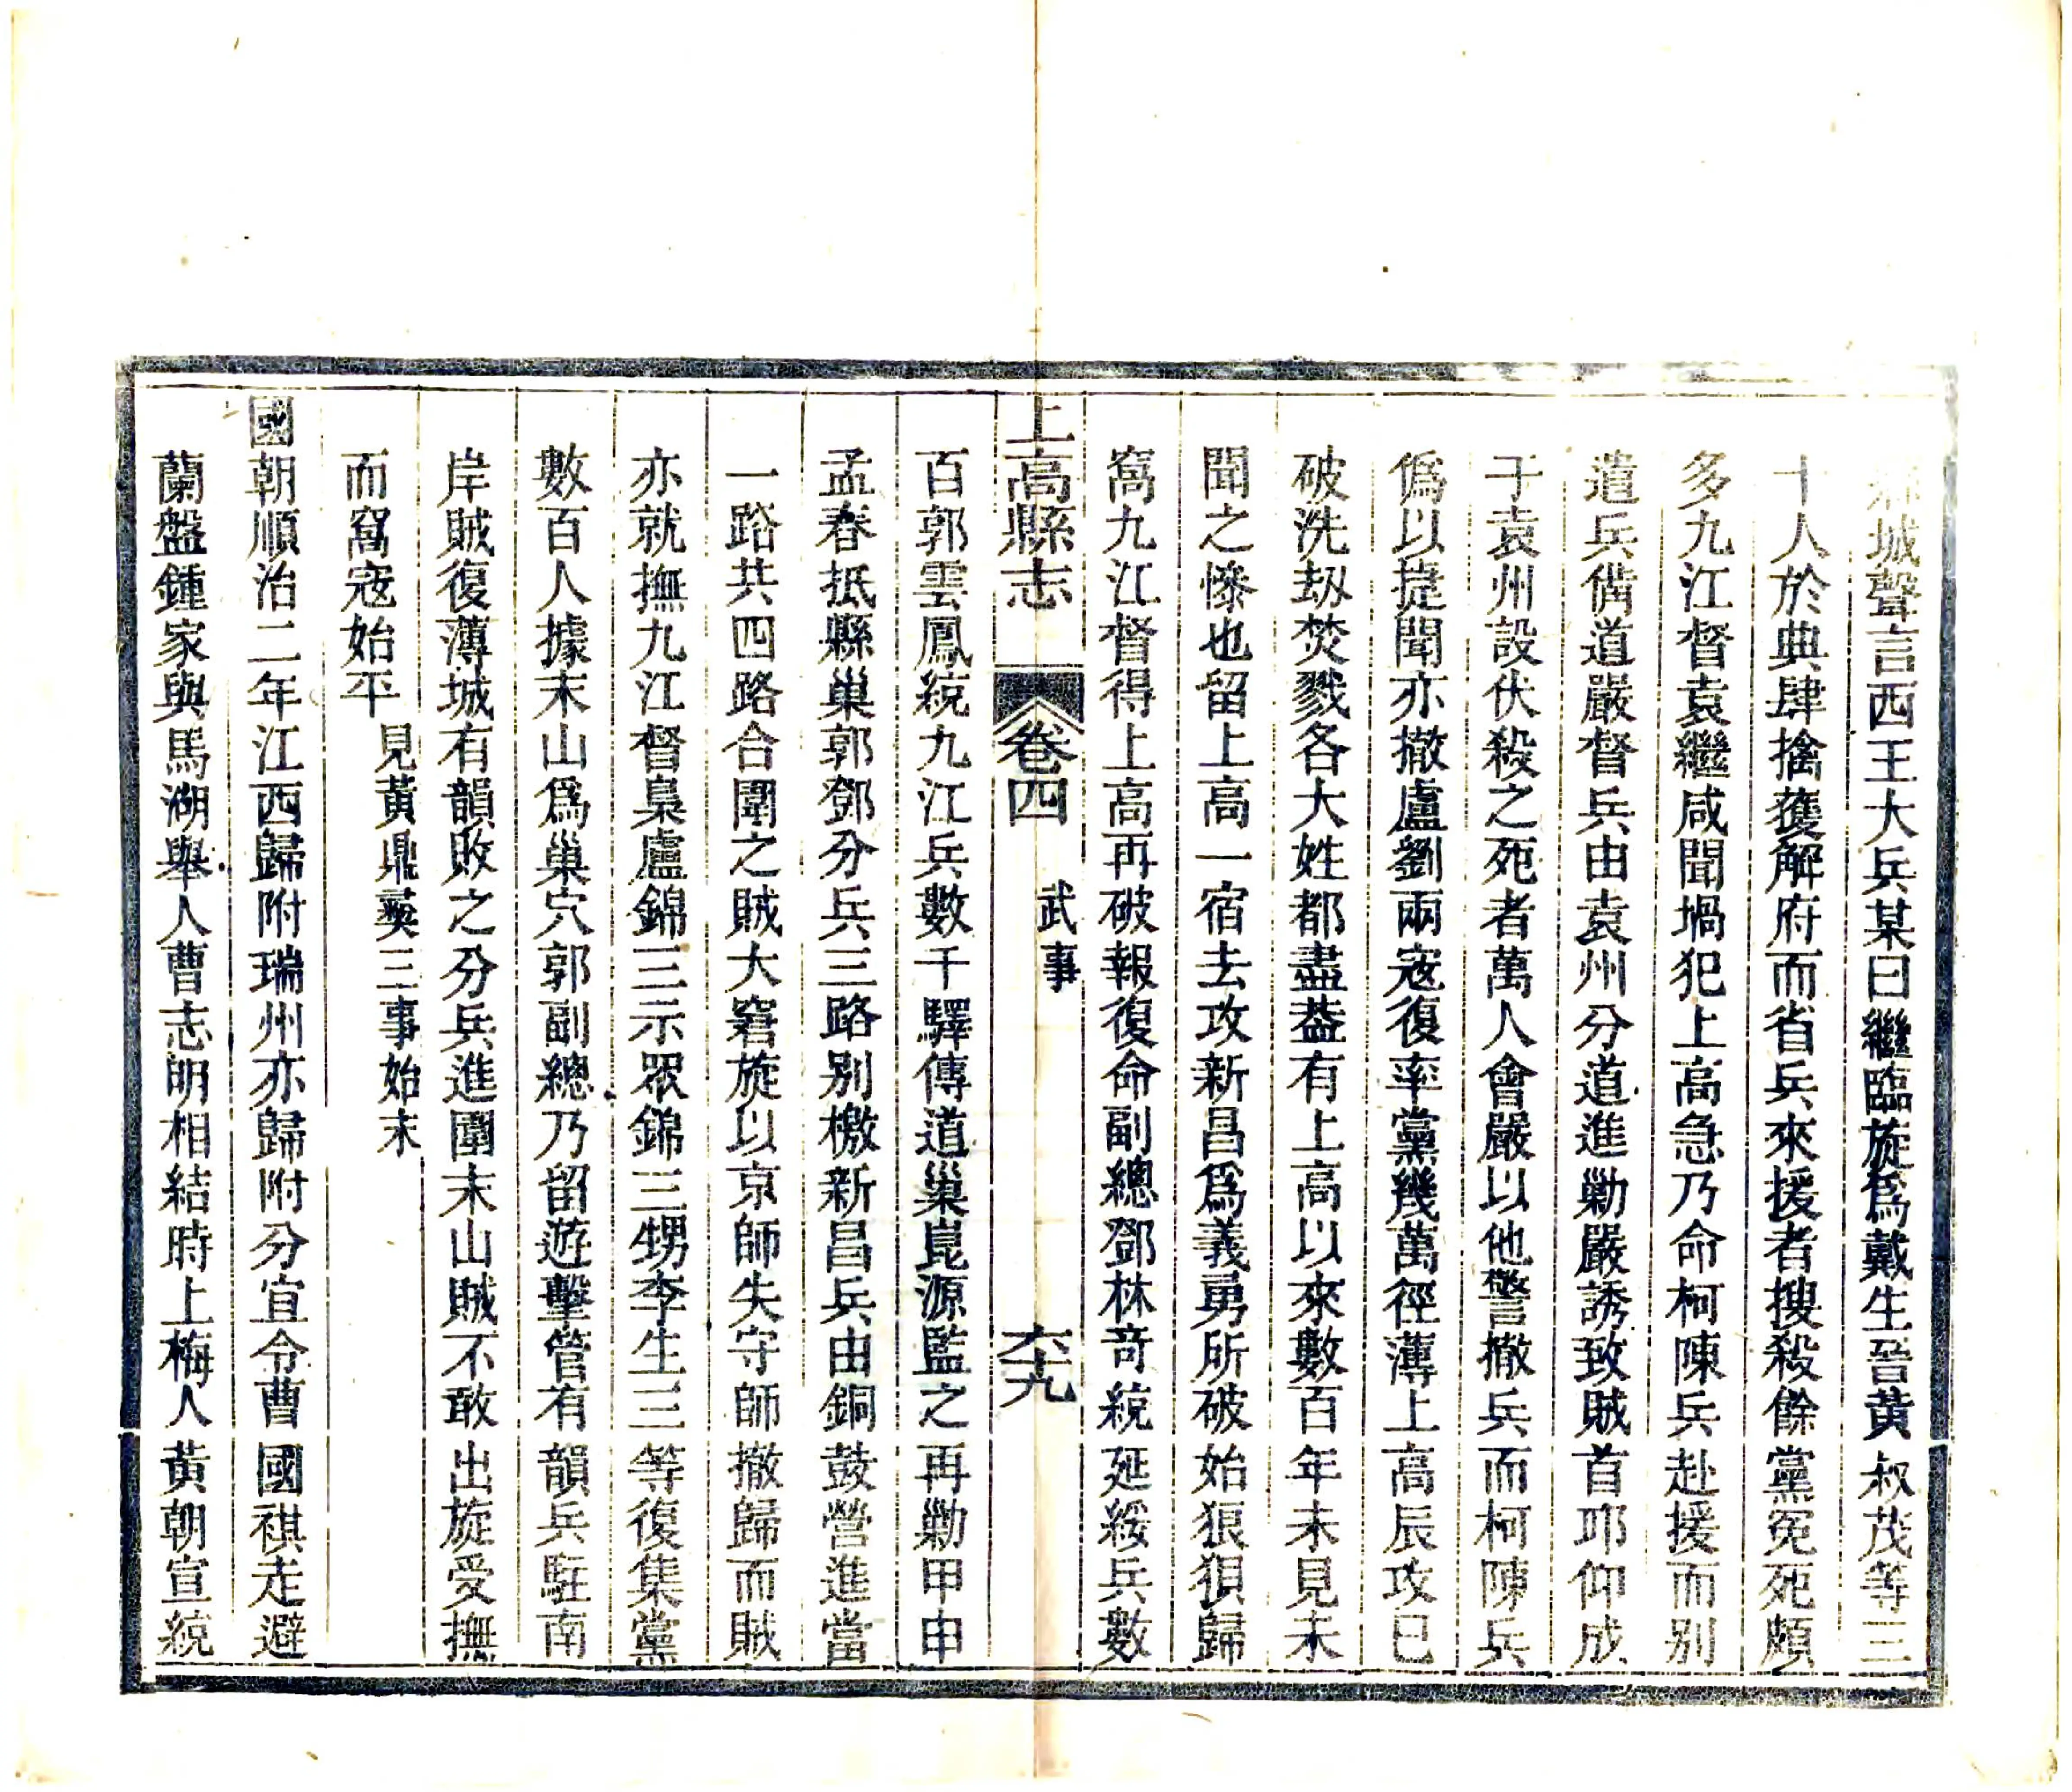 城聲言西王大兵某日繼臨旋爲戴生晉黃叔茂等三
十人於典肆擒獲解府而省兵來援者搜殺餘黨冤死頗
多九江督袁繼咸聞堝犯上高急乃命柯陳兵赴援而別
遣兵偹道嚴督兵由袁州分道進勦嚴誘致賊首邛仰成
于袁州設伏殺之死者萬人會嚴以他警撤兵而柯陳兵
僞以捷聞亦撤盧劉兩寇復率黨幾萬徑薄上高辰攻巳
破洗刼焚戮各大姓都盡葢有上高以來數百年未見未
聞之慘也留上高一宿去攻新昌爲義勇所破始狼狽歸
窩九江督得上高再破報復命副總鄧林竒統延綏兵數
上高縣志 卷四 武事 六十九
百郭雲鳳統九江兵數千驛傳道巢崑源監之再勦甲申
孟春抵縣巢郭鄧分兵三路別檄新昌兵由銅鼓營進當
一路共四路合圍之賊大窘旋以京師失守師撤歸而賊
亦就撫九江督梟盧錦三示眾錦三甥李生三等復集黨
數百人據末山爲巢穴郭副總乃留遊擊管有韻兵駐南
岸賊復薄城有韻敗之分兵進圍末山賊不敢出旋受撫
而窩寇始平 見黃鼎䕫三事始末
國朝順治二年江西歸附瑞州亦歸附分宜令曹國祺走避
蘭盤鍾家與馬湖舉人曹志明相結時上梅人黃朝宣統